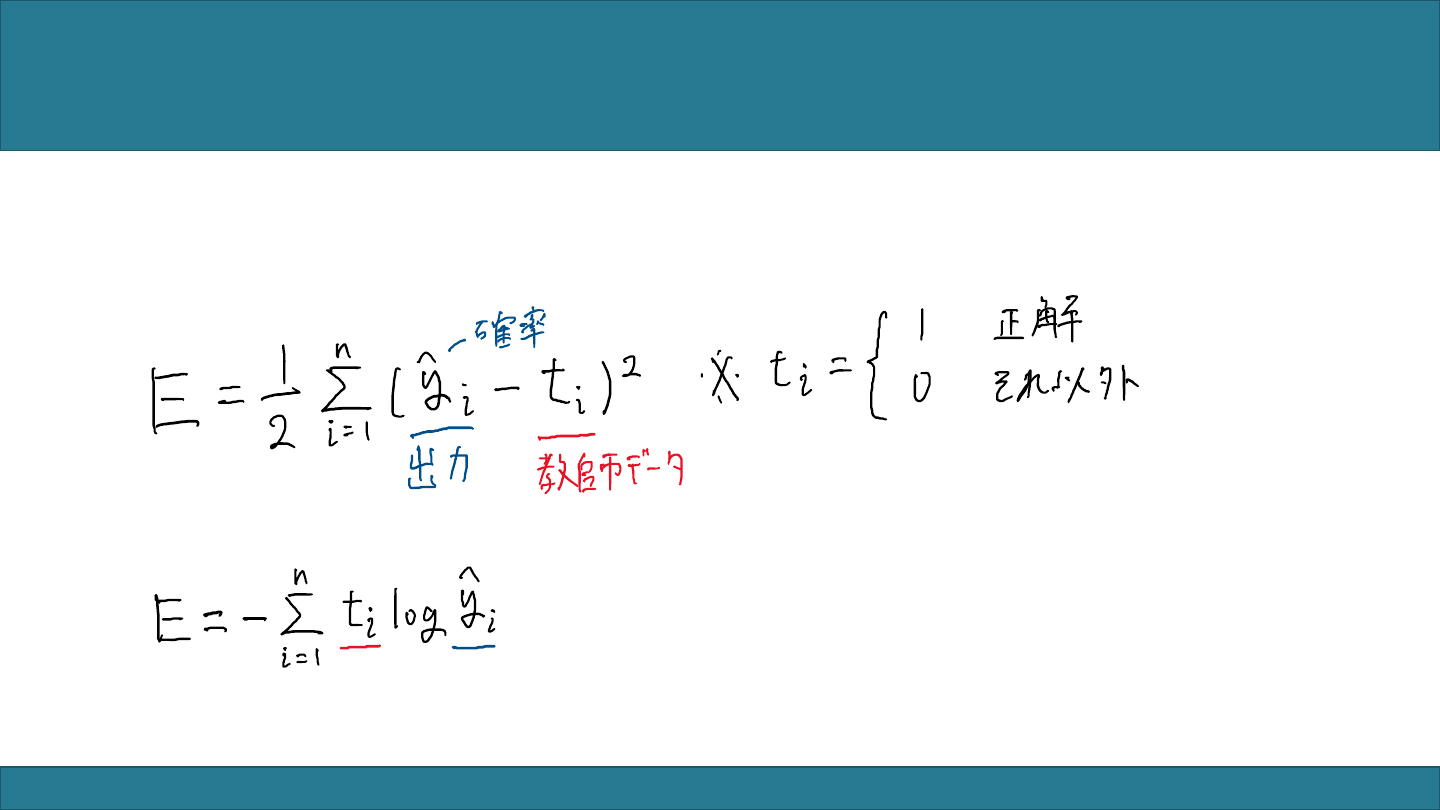 確率
E = 1/2 Σ_{i=1}^{n} (ŷ_i − t_i)² ※ t_i = { 1 正解
0 それ以外
出力 教師データ
E = − Σ_{i=1}^{n} t_i log ŷ_i